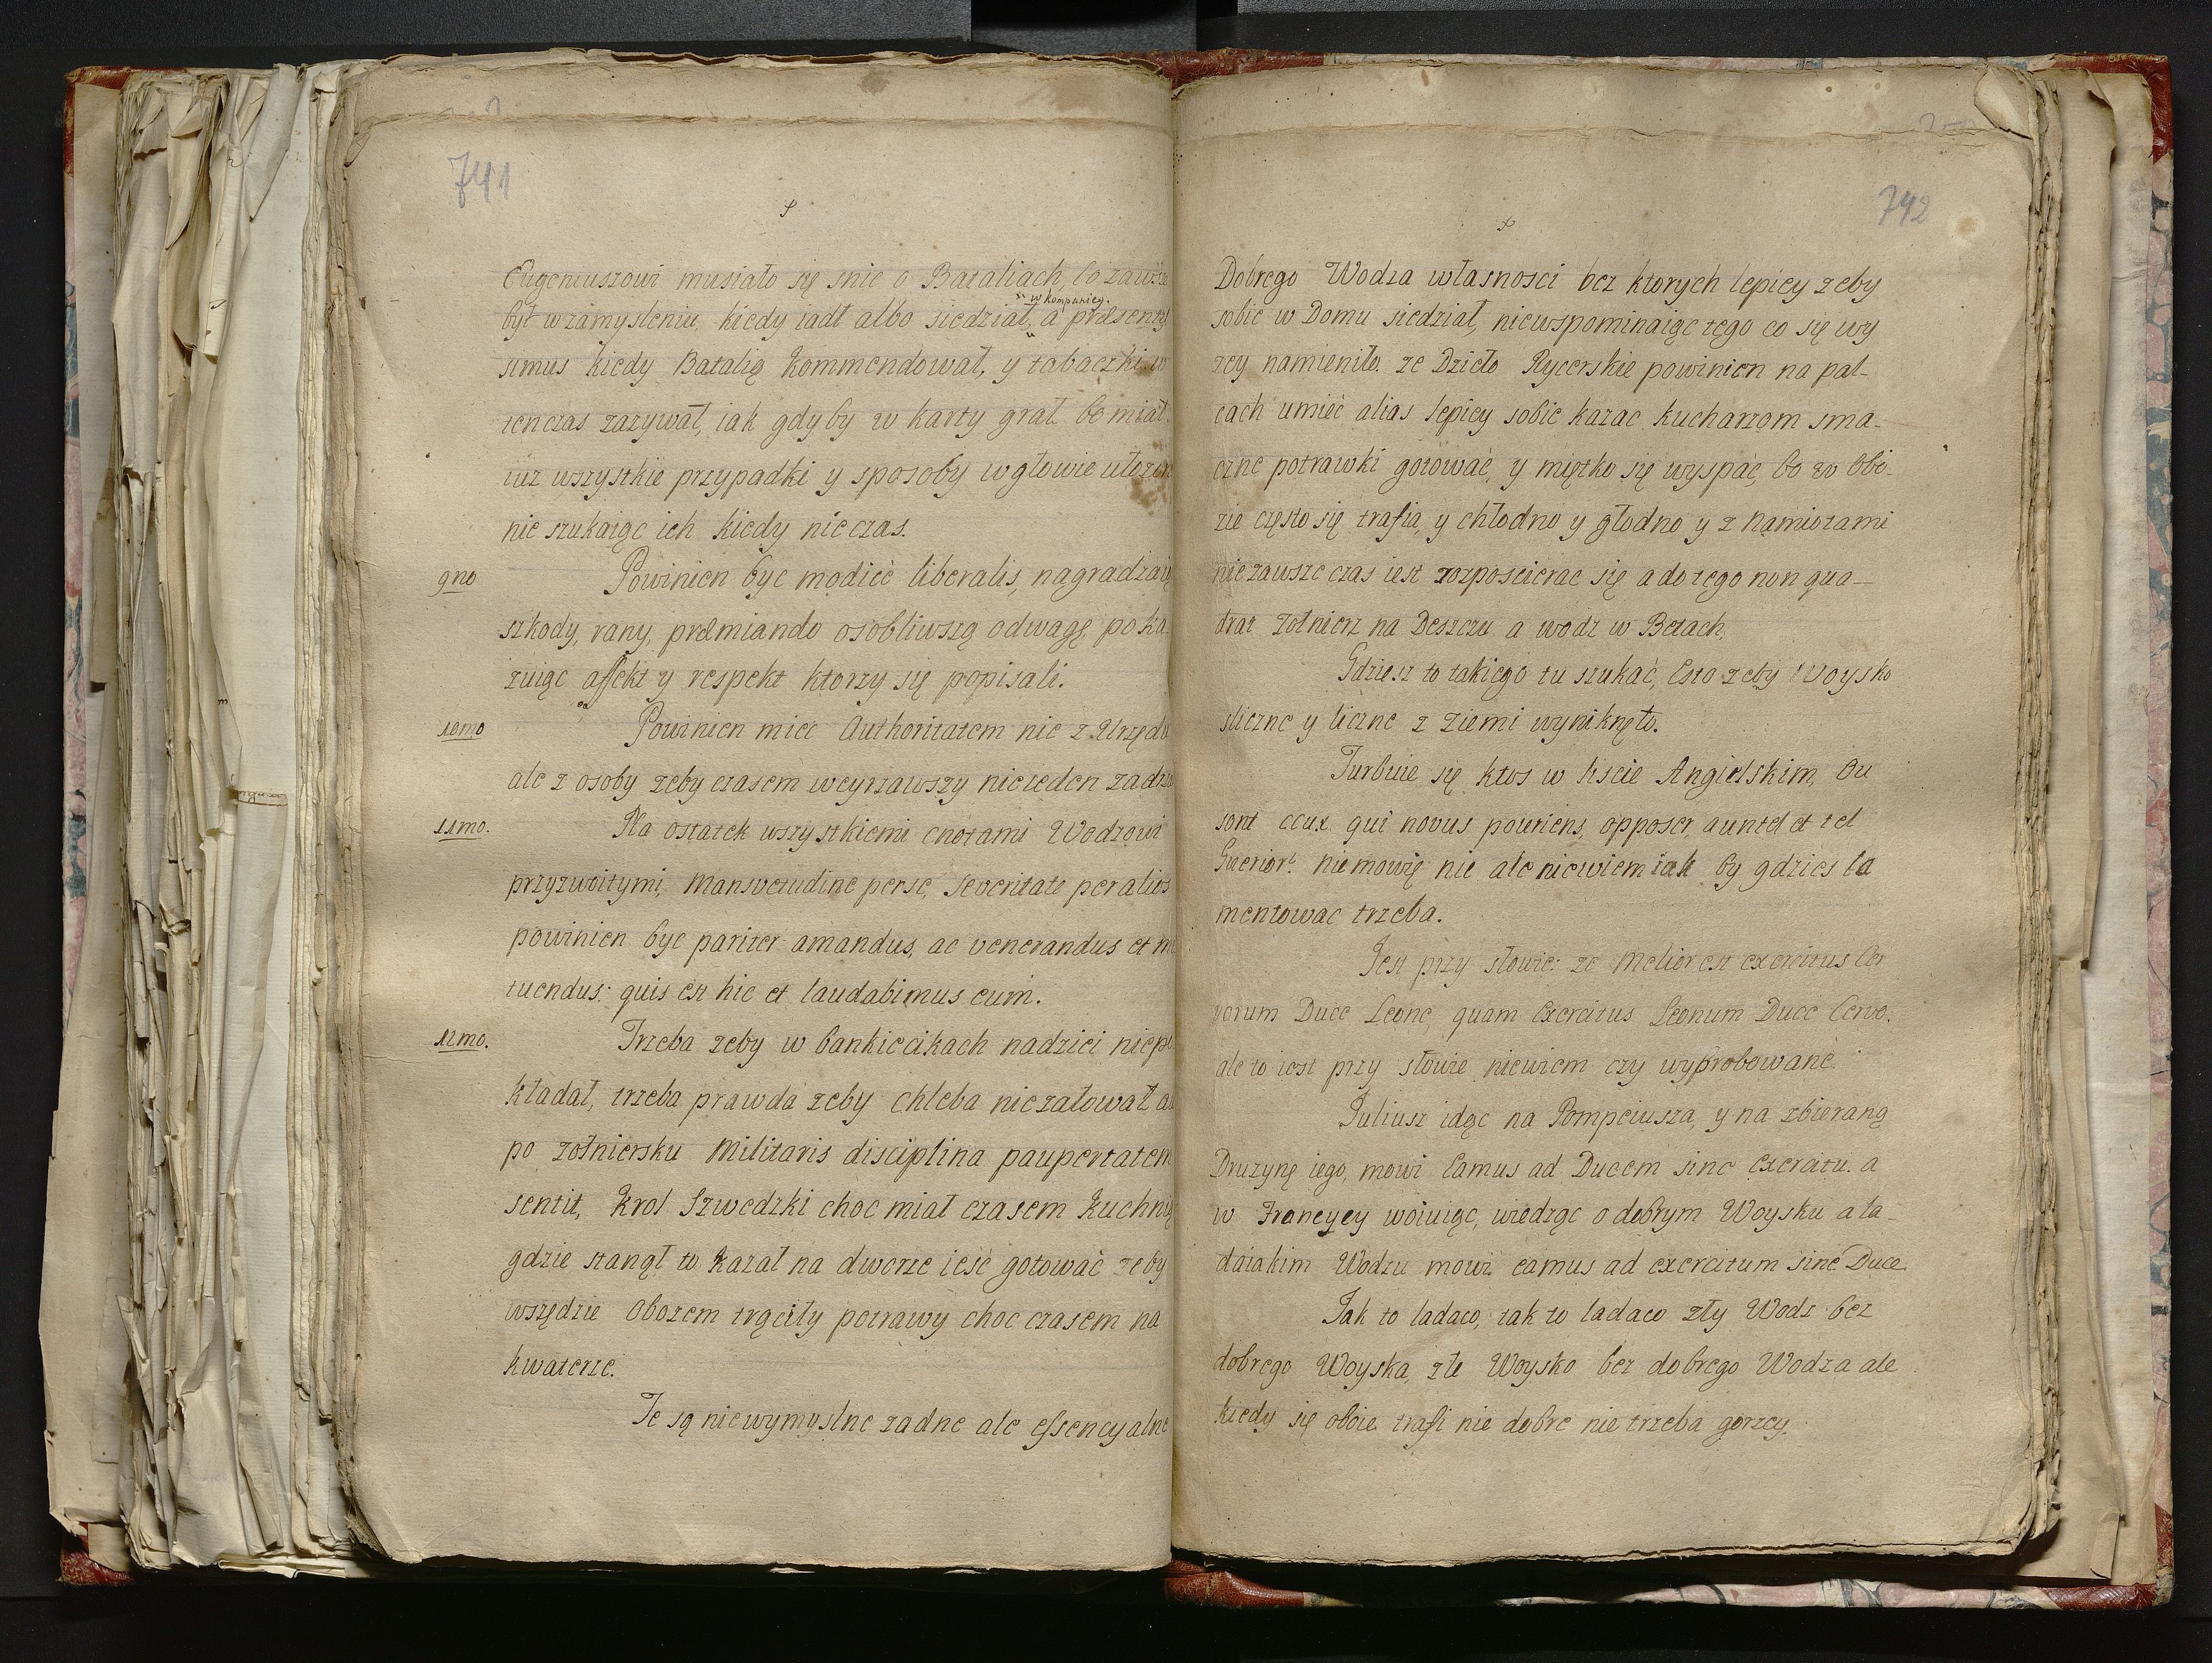 741
Eugeniuszowi musiało się snic o Bataliach, bo zawsze
w kompaniey.
był w zamysleniu, kiedy iadł albo siedział, a præsentis
simus kiedy Batalią kommendował, y tabaczki w
tenczas zazywał, iak gdyby w karty grał bo miał
iuz wszystkie przypadki y sposoby w głowie ułozon
nie szukaiąc ich kiedy nie czas.
9no Powinien byc modice liberalis, nagradzaią
szkody, rany, præmiando osobliwszą odwagę poka
zuiąc affekt y respekt ktorzy się popisali.
10mo Powinien miec Authoritatem nie z Urzędu
ale z osoby zeby czasem weyrzawszy nieieden zadrz
11mo. Na ostatek wszystkiemi cnotami Wodzowi
przyzwoitymi, Mansvetudine per se, Severitate per alios
powinien byc pariter amandus, ac venerandus et m
tuendus: quis est hic et laudabimus eum.
12mo. Trzeba zeby w bankiecikach nadziei niepo
kładał, trzeba prawda zeby chleba niezałował a
po zołniersku Militaris disciplina paupertatem
sentit, Krol Szwedzki choc miał czasem Kuchnię
gdzie stanął to kazał na dworze iesć gotować zeby
wszędzie Obozem trąciły potrawy choc czasem na
kwaterze.
Te są niewymyslne zadne ale essencyalne
742
Dobrego Wodza własnosci bez ktorych lepiey zeby
sobie w Domu siedział, niewspominaiąc tego co się wy
zey namieniło. ze Dzieło Rycerskie powinien na pal-
cach umieć alias lepiey sobie kazac kucharzom sma-
czne potrawki gotować, y miętko się wyspać, bo w Obo-
zie często się trafia, y chłodno y głodno y z namiotami
niezawsze czas iest rozposcierac się a do tego non qua-
drat zołnierz na Deszczu a wodz w Betach.
Gdziesz to takiego tu szukać, Esto zeby Woysko
sliczne y liczne z ziemi wyniknęło.
Turbuie się ktos w liscie Angielskim, Ou
sont ceux qui nous pouriens, opposer, a un tel et tel
Guerior. nie mowię nie ale niewiem iak by gdzies la
mentowac trzeba.
Jest przy słowie: ze Melior est exercitus Cer
vorum Duce Leone, quam Exercitus Leonum Duce Cervo.
ale to iest przy słowie niewiem czy wyprobowane.
Juliusz idąc na Pompeiusza, y na zbieraną
Druzynę iego, mowi Eamus ad Ducem sine Exercitu. a
w Francyey woiuiąc, wiedząc o dobrym Woysku a la-
daiakim Wodzu mowi eamus ad exercitum sine Duce
Jak to ladaco, tak to ladaco zły Wodz bez
dobrego Woyska, złe Woysko bez dobrego Wodza ale
kiedy się oboie trafi nie dobre nie trzeba gorzey.